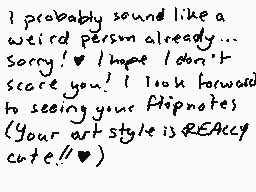 I probably sound like a
weird person already...
sorry! ♥ I hope I don't
scare you! I look forward
to seeing your flipnotes
(Your art style is REALLY
cute!! ♥)